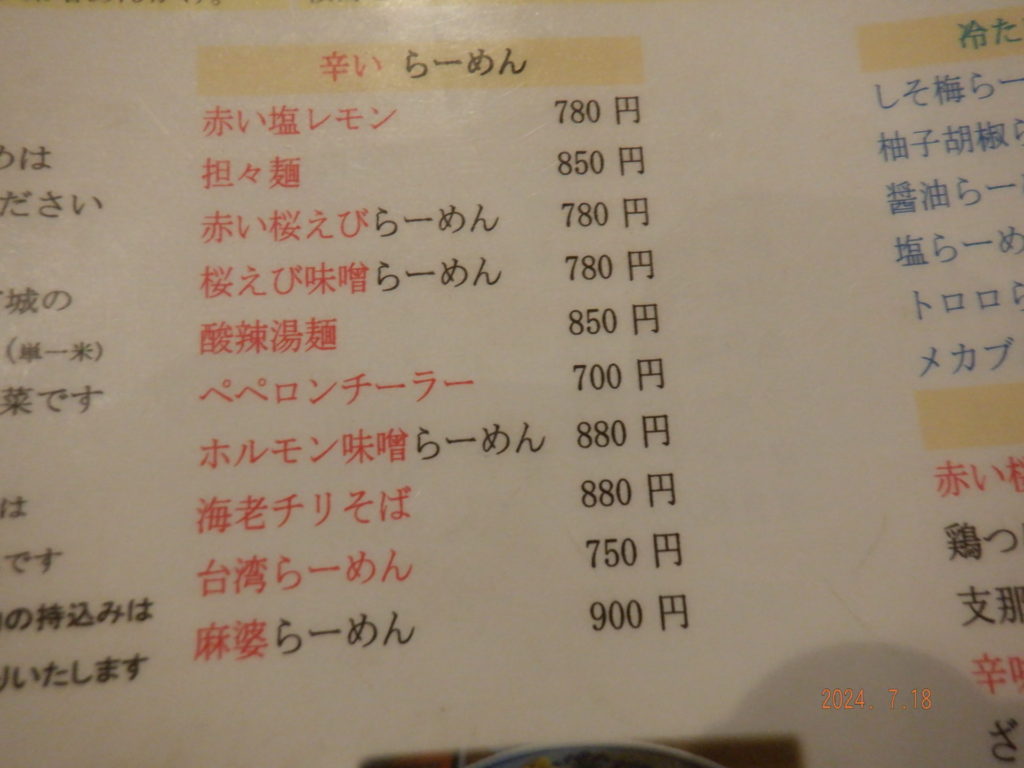 めは
ださい
城の
(単一米)
菜です
は
です
の持込みは
いたします
辛い らーめん
赤い塩レモン 780 円
担々麺 850 円
赤い桜えびらーめん 780 円
桜えび味噌らーめん 780 円
酸辣湯麺 850 円
ペペロンチーラー 700 円
ホルモン味噌らーめん 880 円
海老チリそば 880 円
台湾らーめん 750 円
麻婆らーめん 900 円
冷た
しそ梅らー
柚子胡椒ら
醤油らー
塩らーめ
トロロら
メカブ
赤い桜
鶏つ
支那
辛味
ざ
2024. 7.18